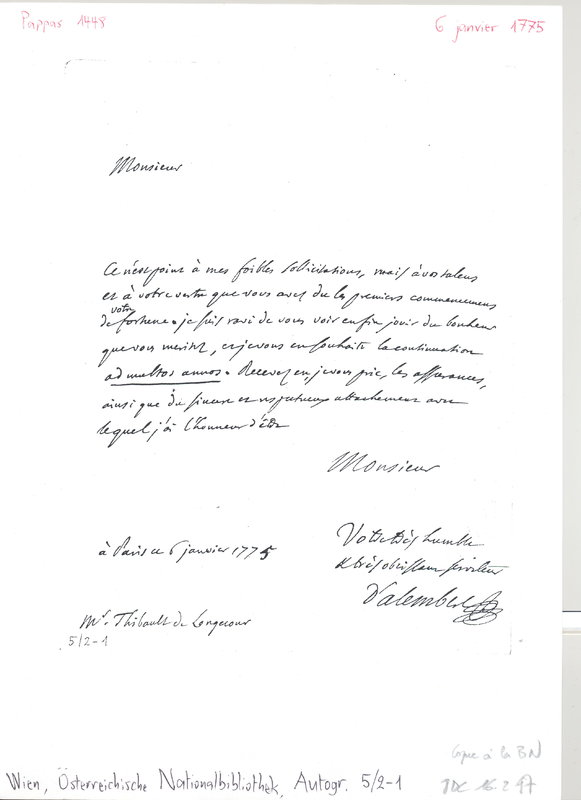 Pappas 1448
6 janvier 1775
Monsieur
Ce n'est point à mes foibles sollicitations, mais à vos talens
et à votre vertu que vous avez du les premiers commencemens
de votre fortune. je suis ravi de vous voir enfin jouir du bonheur
que vous meritez, et je vous en souhaite la continuation
ad multos annos. Recevez en, je vous prie, les assurances,
ainsi que du sincere et respectueux attachement avec
lequel j'ai l'honneur d'être
Monsieur
à Paris ce 6 janvier 1775
Votre très humble
et très obeissant serviteur
D'alembert
Mr. Thibault de Longecour
5/2-1
Copie à la BN
16.2.97
Wien, Österreichische Nationalbibliothek, Autogr. 5/2-1